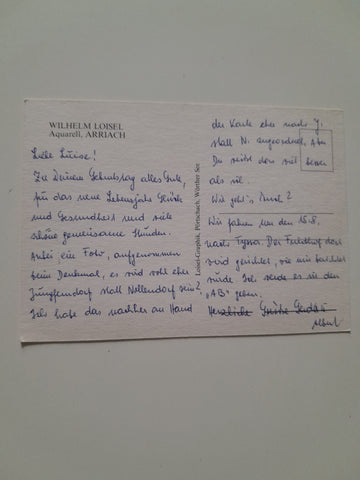 WILHELM LOISEL
Aquarell, ARRIACH
Liebe Luise!
Zu Deinem Geburtstag alles Gute,
für das neue Lebensjahr Glück
und Gesundheit und viele
schöne gemeinsame Stunden.
Anbei ein Foto, aufgenommen
beim Denkmal, es wird wohl eher
Jungferndorf statt Nollendorf sein?
Ich habe das nachher an Hand
Loisel-Graphik, Pörtschach, Wörther See
der Karte eher nach J.
statt N. angeordnet. Aber
Du siehst den viel besser
als ich.
Wie geht's,
Wir fahren um den 18.8.
nach Tyssa. Der Friedhof dort
wird gerichtet, wie mir berichtet
wurde. Ich werde es in den
"AB" geben.
Herzliche Grüße
Albert